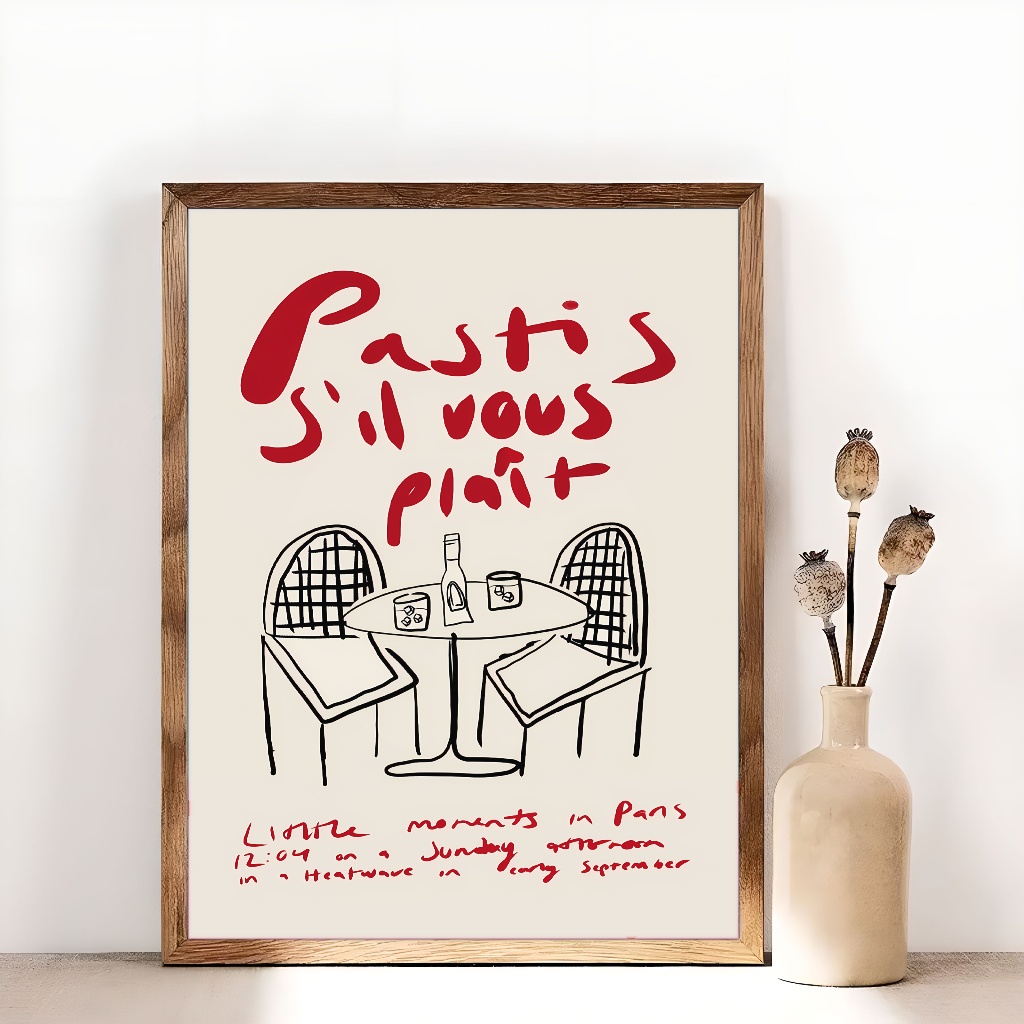 Pastis
s'il vous
plaît
Little moments in Paris
12:04 on a Sunday afternoon
in a Heatwave in early September